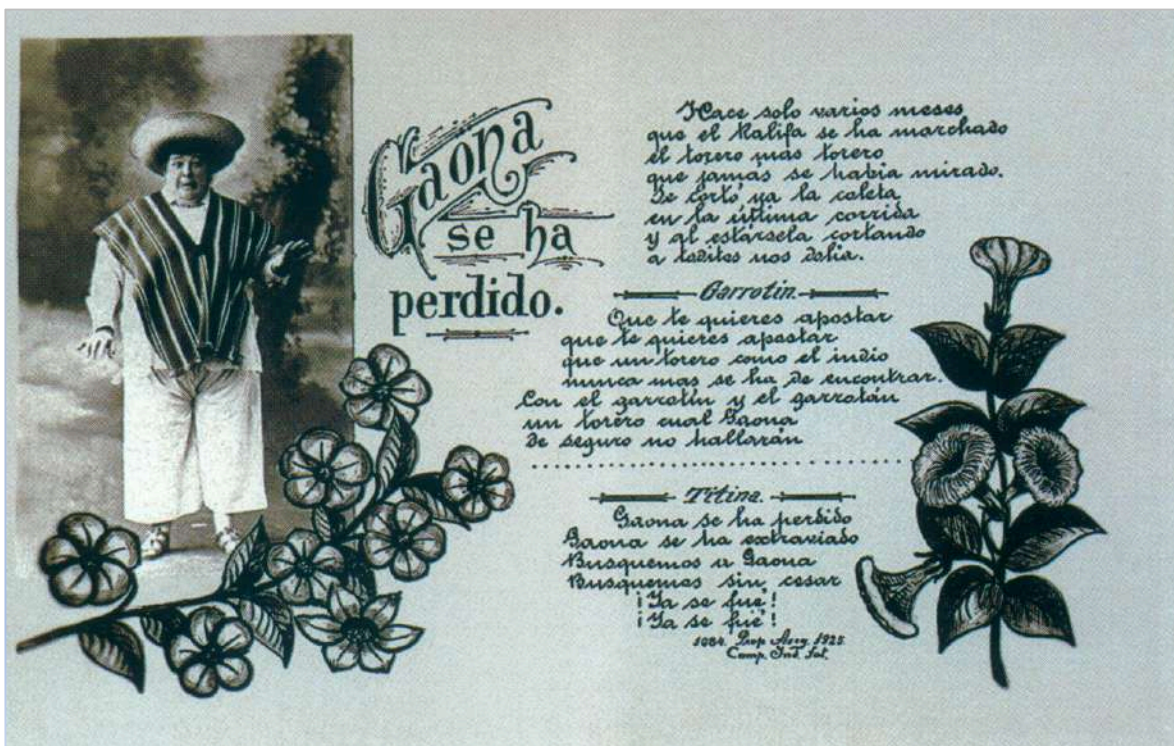 Gaona
se ha
perdido.
Hace solo varios meses
que el Kalifa se ha marchado
el torero mas torero
que jamás se había mirado.
Se cortó ya la coleta
en la última corrida
y al estársela cortando
a toditos nos dolia.
Garrotin.
Que te quieres apostar
que te quieres apostar
que un torero como el indio
nunca mas se ha de encontrar.
Con el garrotín y el garrotán
un torero cual Gaona
de seguro no hallarán
Titina.
Gaona se ha perdido
Gaona se ha extraviado
Busquemos a Gaona
Busquemos sin cesar
¡Ya se fué!
¡Ya se fué!
Prop. 1925.
Comp. Ind. Fot.